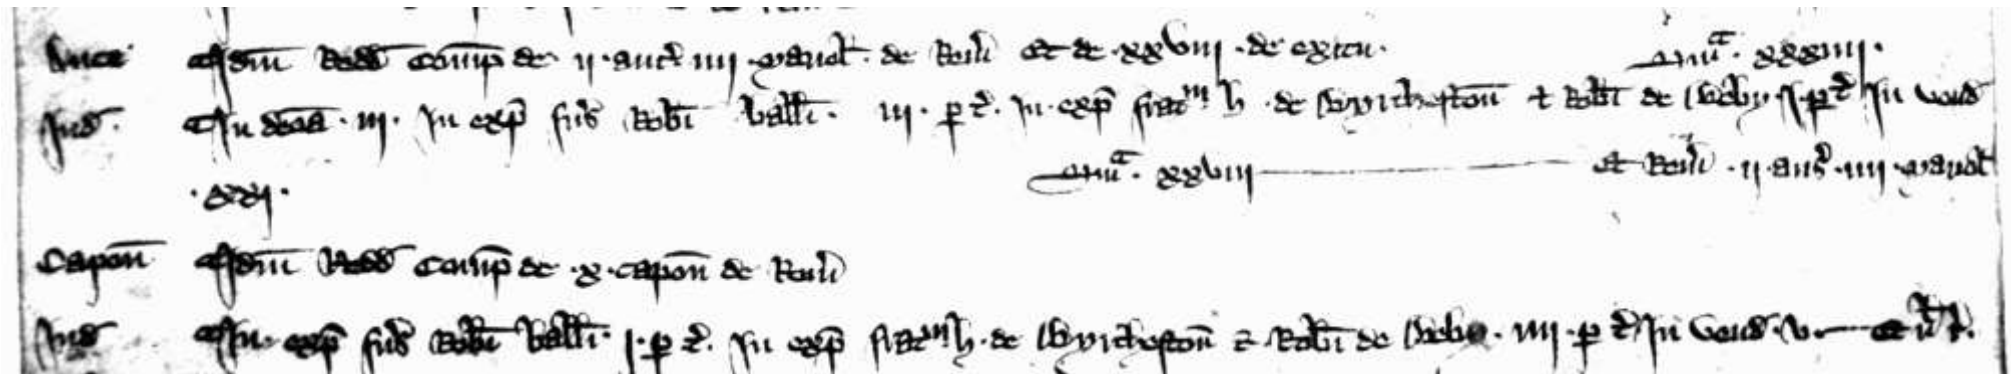 Auce Idm̄ Redd Comp̄ de ij auc̄ iiij mariol̄ de Rem̄ Et de xxviij de exitu. Sm̄a xxxiiij.
Ind̄. In decīa iij. In exp̄ sup̄ Rob̄i ball̄i. iij. p t̄. In exp̄ frat̄m h de Wyrcheston̄ & Rob̄i de Weby j. p t̄ In vend̄
xxj. Sm̄a xxviij Et Rem̄ ij auc̄ iiij mariol̄
Capon̄ Idm̄ Redd Comp̄ de x capon̄ de Rem̄
Ind̄ In exp̄ sup̄ Rob̄i ball̄i. j. p t̄. In exp̄ frat̄m h. de Wyrcheston̄ & Rob̄i de Weby. iiij. p t̄ In vend̄. v.